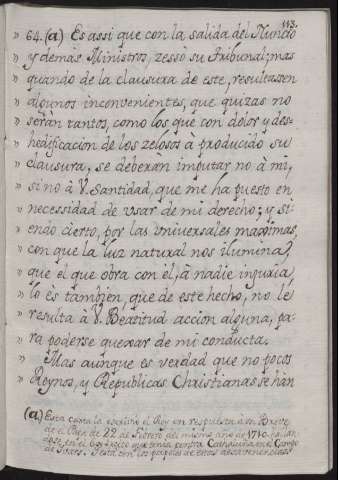 113.
" 64. (a) Es assi que con la salida del Nuncio
" y demás Ministros, zessó su tribunal; mas
" quando de la clausura de este, resultassen
" algunos inconvenientes, que quizas no
" serán tantos, como los que con dolor y des-
" hedificacion de los zelosos à producido su
" clausura, se deberàn imputar no à mi,
" sino à V. Santidad, que me ha puesto en
" necessidad de usar de mi derecho; y si-
" endo cierto, por las universales maximas,
" con que la luz natural nos ilumina,
" que el que obra con èl, à nadie injuria,
" lo ès tambien, que de este hecho, no le
" resulta à V. Beatitud accion alguna, pa-
" ra poderse quexar de mi conducta.
" Mas aunque es verdad que no pocos
" Reynos, y Republicas Christianas se han
(a) Esta carta la escrivió el Rey en respuesta à un Breve
de el Papa de 22 de Febrero del mismo año de 1710. hallan-
dose en el Exercito que tenia contra Cathaluña en el Campo
de